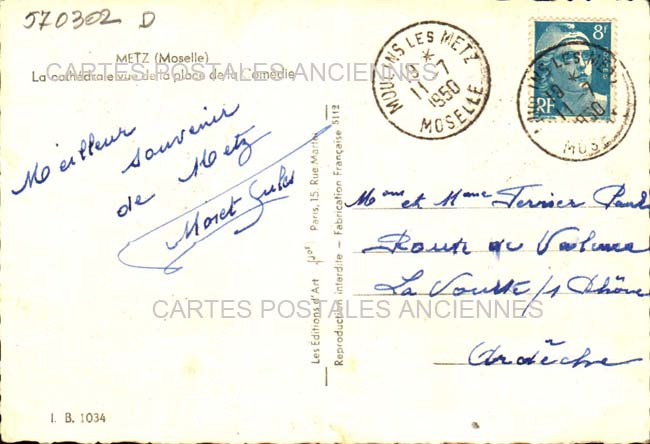 570302 D
METZ (Moselle)
La cathédrale vue de la place de la Comédie
CARTES POSTALES ANCIENNES
Meilleur
souvenir
de Metz
Moret Jules
Les Éditions d'Art Paris, 15, Rue Martin
Reproduction interdite - Fabrication Française 5112
MOULINS LES METZ
*
11-7
1950
MOSELLE
8F
RF
LES METZ
*
11-7
1950
Mons et Mme Terrier Paul
Route de Valence
La Voulte s/ Rhône
CARTES POSTALES ANCIENNES
Ardèche
I. B. 1034